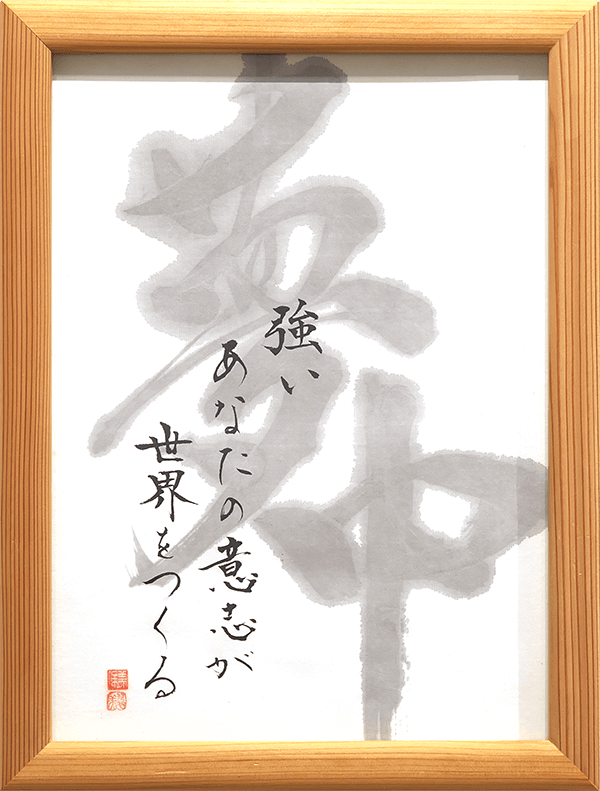 夢中
強い
あなたの意志が
世界をつくる